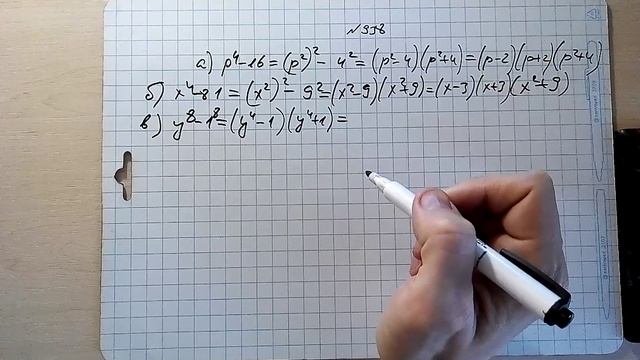 №998
а) p⁴-16=(p²)²-4²=(p²-4)(p²+4)=(p-2)(p+2)(p²+4)
б) x⁴-81=(x²)²-9²=(x²-9)(x²+9)=(x-3)(x+3)(x²+9)
в) y⁸-1⁸=(y⁴-1)(y⁴+1)=